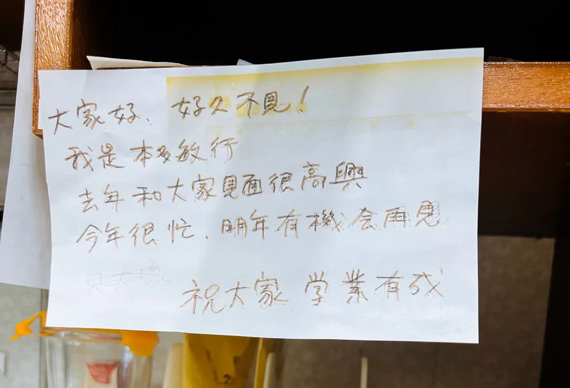 大家好、好久不見！
我是本多敏行
去年和大家見面很高興
今年很忙、明年有機会再見
祝大家 学業有成